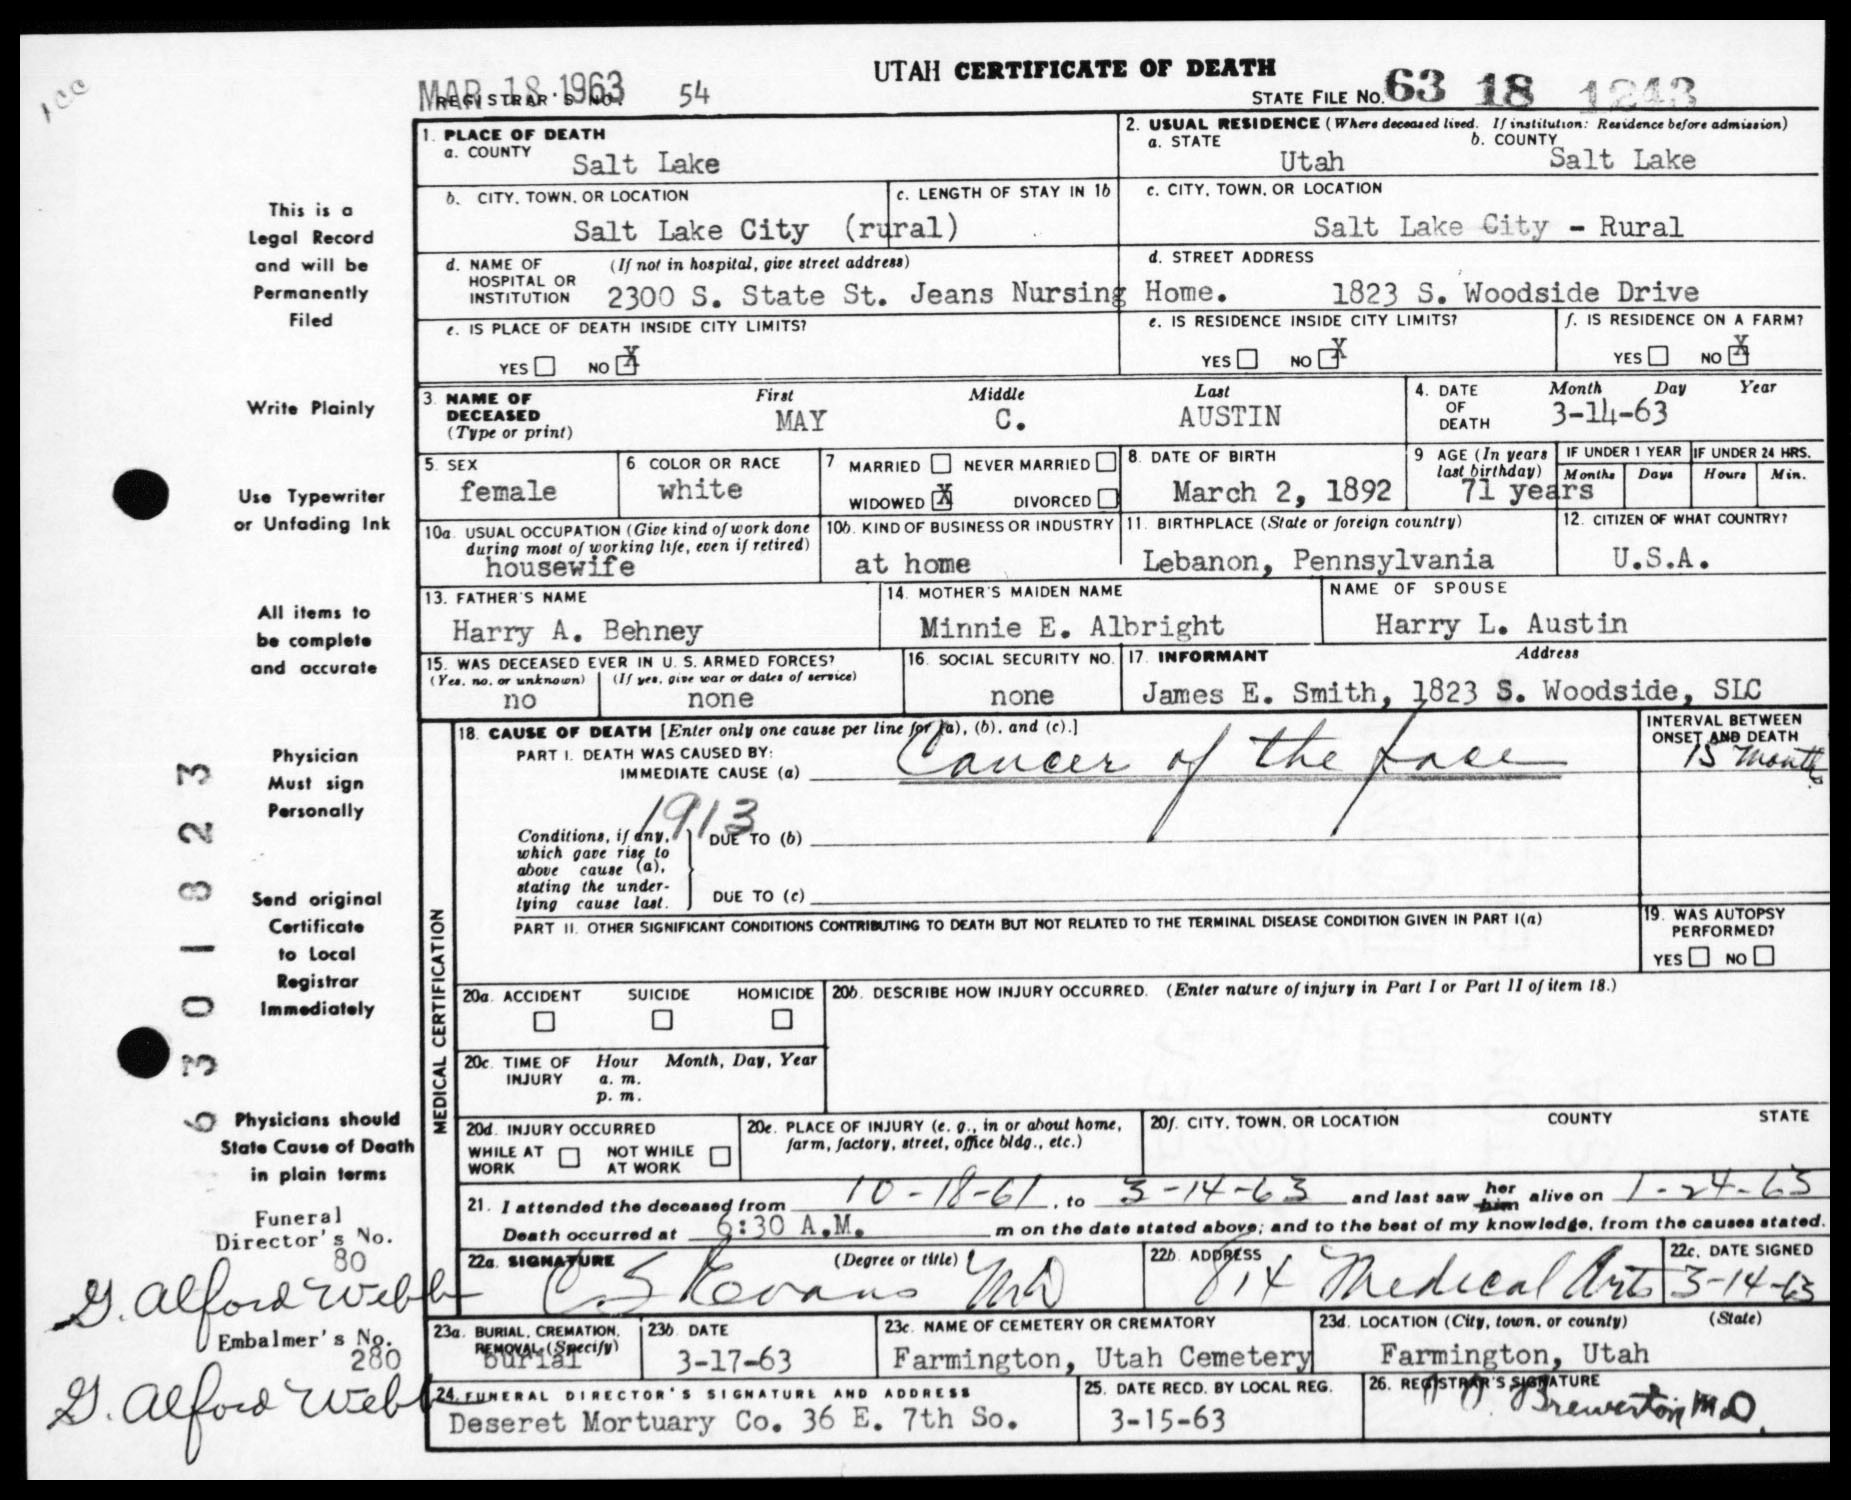 UTAH CERTIFICATE OF DEATH
MAR 18 1963
REGISTRAR'S NO. 54
STATE FILE NO. 63 18 1243
1. PLACE OF DEATH
a. COUNTY
Salt Lake
2. USUAL RESIDENCE (Where deceased lived. If institution: Residence before admission)
a. STATE b. COUNTY
Utah Salt Lake
b. CITY, TOWN, OR LOCATION c. LENGTH OF STAY IN 1b
Salt Lake City (rural)
c. CITY, TOWN, OR LOCATION
Salt Lake City - Rural
d. NAME OF HOSPITAL OR INSTITUTION (If not in hospital, give street address)
2300 S. State St. Jeans Nursing Home.
d. STREET ADDRESS
1823 S. Woodside Drive
e. IS PLACE OF DEATH INSIDE CITY LIMITS?
YES NO X
e. IS RESIDENCE INSIDE CITY LIMITS?
YES NO X
f. IS RESIDENCE ON A FARM?
YES NO X
3. NAME OF DECEASED (Type or print)
First Middle Last
MAY C. AUSTIN
4. DATE OF DEATH Month Day Year
3-14-63
5. SEX
female
6 COLOR OR RACE
white
7 MARRIED NEVER MARRIED
WIDOWED X DIVORCED
8. DATE OF BIRTH
March 2, 1892
9 AGE (In years last birthday)
71 years
IF UNDER 1 YEAR
Months Days
IF UNDER 24 HRS.
Hours Min.
10a. USUAL OCCUPATION (Give kind of work done during most of working life, even if retired)
housewife
10b. KIND OF BUSINESS OR INDUSTRY
at home
11. BIRTHPLACE (State or foreign country)
Lebanon, Pennsylvania
12. CITIZEN OF WHAT COUNTRY?
U.S.A.
13. FATHER'S NAME
Harry A. Behney
14. MOTHER'S MAIDEN NAME
Minnie E. Albright
NAME OF SPOUSE
Harry L. Austin
15. WAS DECEASED EVER IN U. S. ARMED FORCES?
(Yes, no, or unknown) (If yes, give war or dates of service)
no none
16. SOCIAL SECURITY NO.
none
17. INFORMANT Address
James E. Smith, 1823 S. Woodside, SLC
MEDICAL CERTIFICATION
18. CAUSE OF DEATH [Enter only one cause per line for (a), (b), and (c).]
PART I. DEATH WAS CAUSED BY:
IMMEDIATE CAUSE (a) Cancer of the face
INTERVAL BETWEEN ONSET AND DEATH
15 months
1913
Conditions, if any, which gave rise to above cause (a), stating the underlying cause last.
DUE TO (b)
DUE TO (c)
PART II. OTHER SIGNIFICANT CONDITIONS CONTRIBUTING TO DEATH BUT NOT RELATED TO THE TERMINAL DISEASE CONDITION GIVEN IN PART I(a)
19. WAS AUTOPSY PERFORMED?
YES NO
20a. ACCIDENT SUICIDE HOMICIDE
20b. DESCRIBE HOW INJURY OCCURRED. (Enter nature of injury in Part I or Part II of item 18.)
20c. TIME OF INJURY Hour Month, Day, Year
a. m.
p. m.
20d. INJURY OCCURRED
WHILE AT WORK NOT WHILE AT WORK
20e. PLACE OF INJURY (e. g., in or about home, farm, factory, street, office bldg., etc.)
20f. CITY, TOWN, OR LOCATION COUNTY STATE
21. I attended the deceased from 10-18-61, to 3-14-63 and last saw her him alive on 1-24-63
Death occurred at 6:30 A.M. m on the date stated above; and to the best of my knowledge, from the causes stated.
22a. SIGNATURE (Degree or title)
C S Evans MD
22b. ADDRESS
814 Medical Arts
22c. DATE SIGNED
3-14-63
23a. BURIAL, CREMATION, REMOVAL (Specify)
burial
23b. DATE
3-17-63
23c. NAME OF CEMETERY OR CREMATORY
Farmington, Utah Cemetery
23d. LOCATION (City, town, or county) (State)
Farmington, Utah
24. FUNERAL DIRECTOR'S SIGNATURE AND ADDRESS
Deseret Mortuary Co. 36 E. 7th So.
25. DATE RECD. BY LOCAL REG.
3-15-63
26. REGISTRAR'S SIGNATURE
Brewerton M.D.
This is a
Legal Record
and will be
Permanently
Filed
Write Plainly
Use Typewriter
or Unfading Ink
All items to
be complete
and accurate
Physician
Must sign
Personally
Send original
Certificate
to Local
Registrar
Immediately
Physicians should
State Cause of Death
in plain terms
Funeral
Director's No.
80
G. Alford Webb
Embalmer's No.
280
G. Alford Webb
6 3 0 1 8 2 3